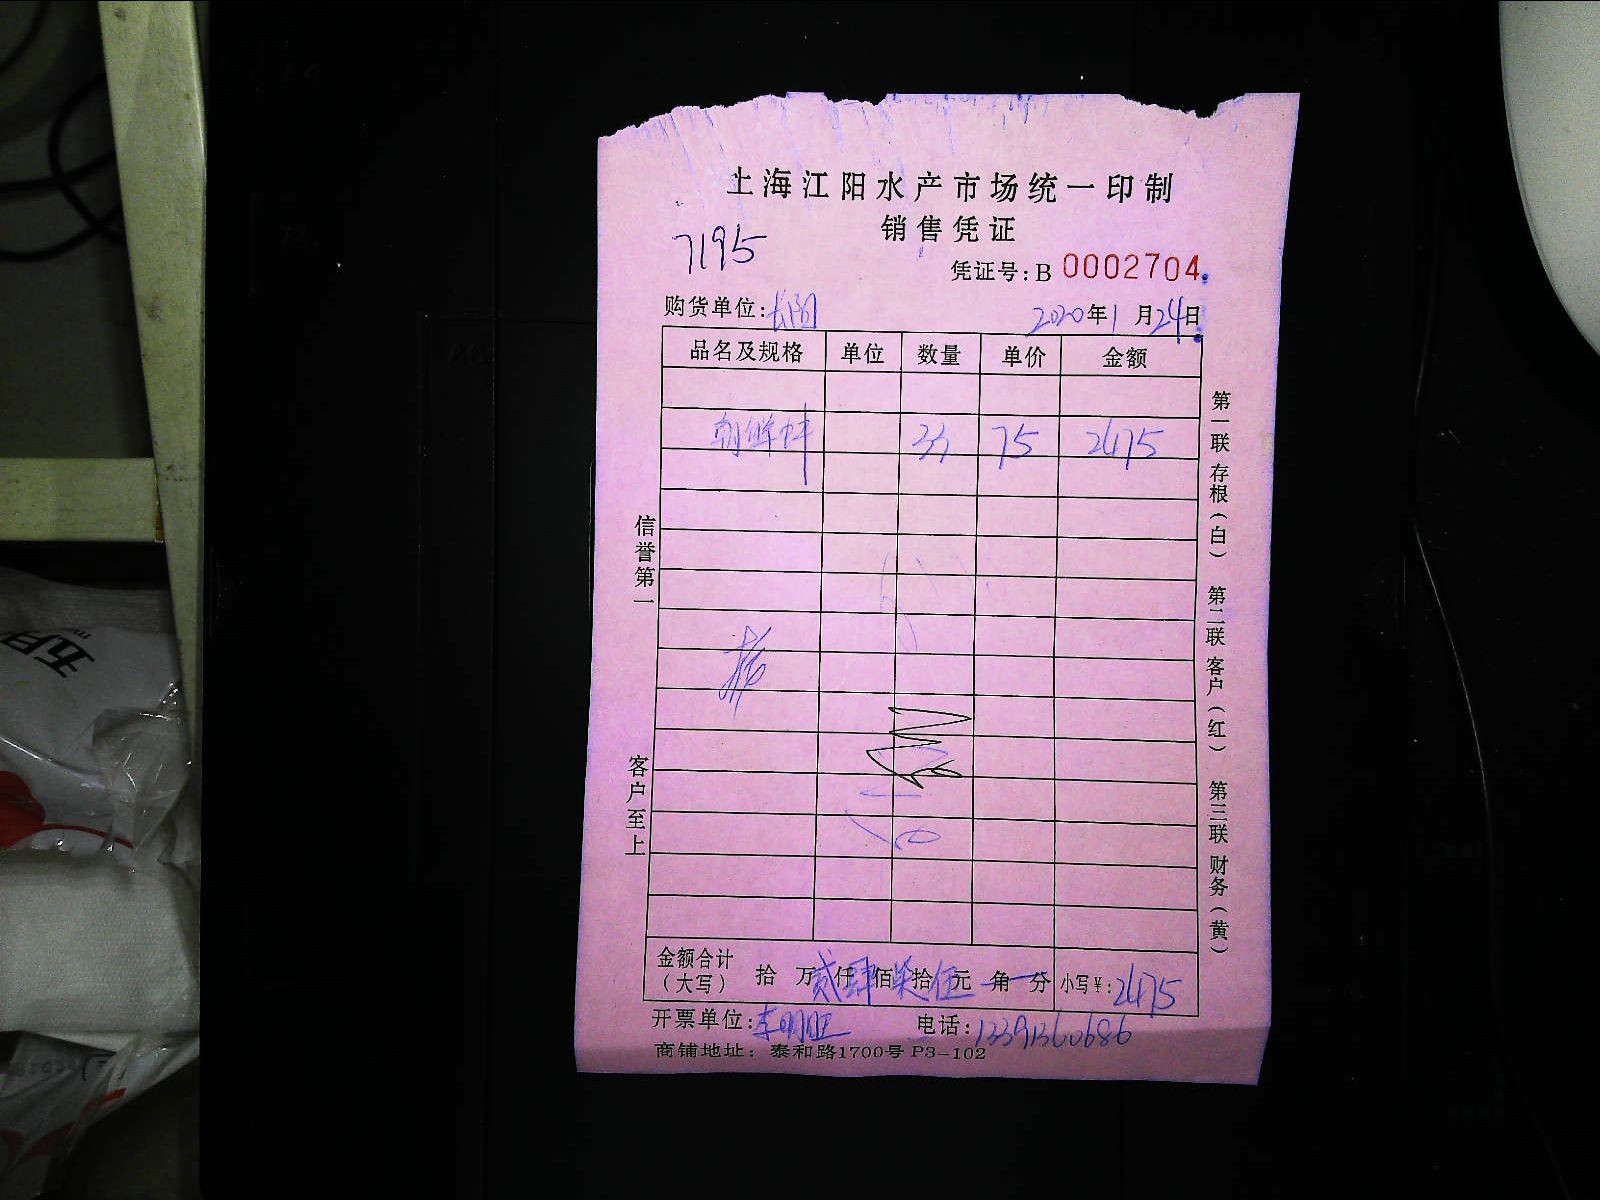 上海江阳水产市场统一印制
销售凭证
7195
凭证号:B 0002704
购货单位:
2020年1月24日
品名及规格 单位 数量 单价 金额
朝鲜蚌 33 75 2475
信誉第一
客户至上
第一联 存根(白) 第二联 客户(红) 第三联 财务(黄)
金额合计(大写) 拾 万贰仟肆佰柒拾伍元 角 分 小写¥:2475
开票单位:李明旺 电话:13391360686
商铺地址: 泰和路1700号 P3-102
五月